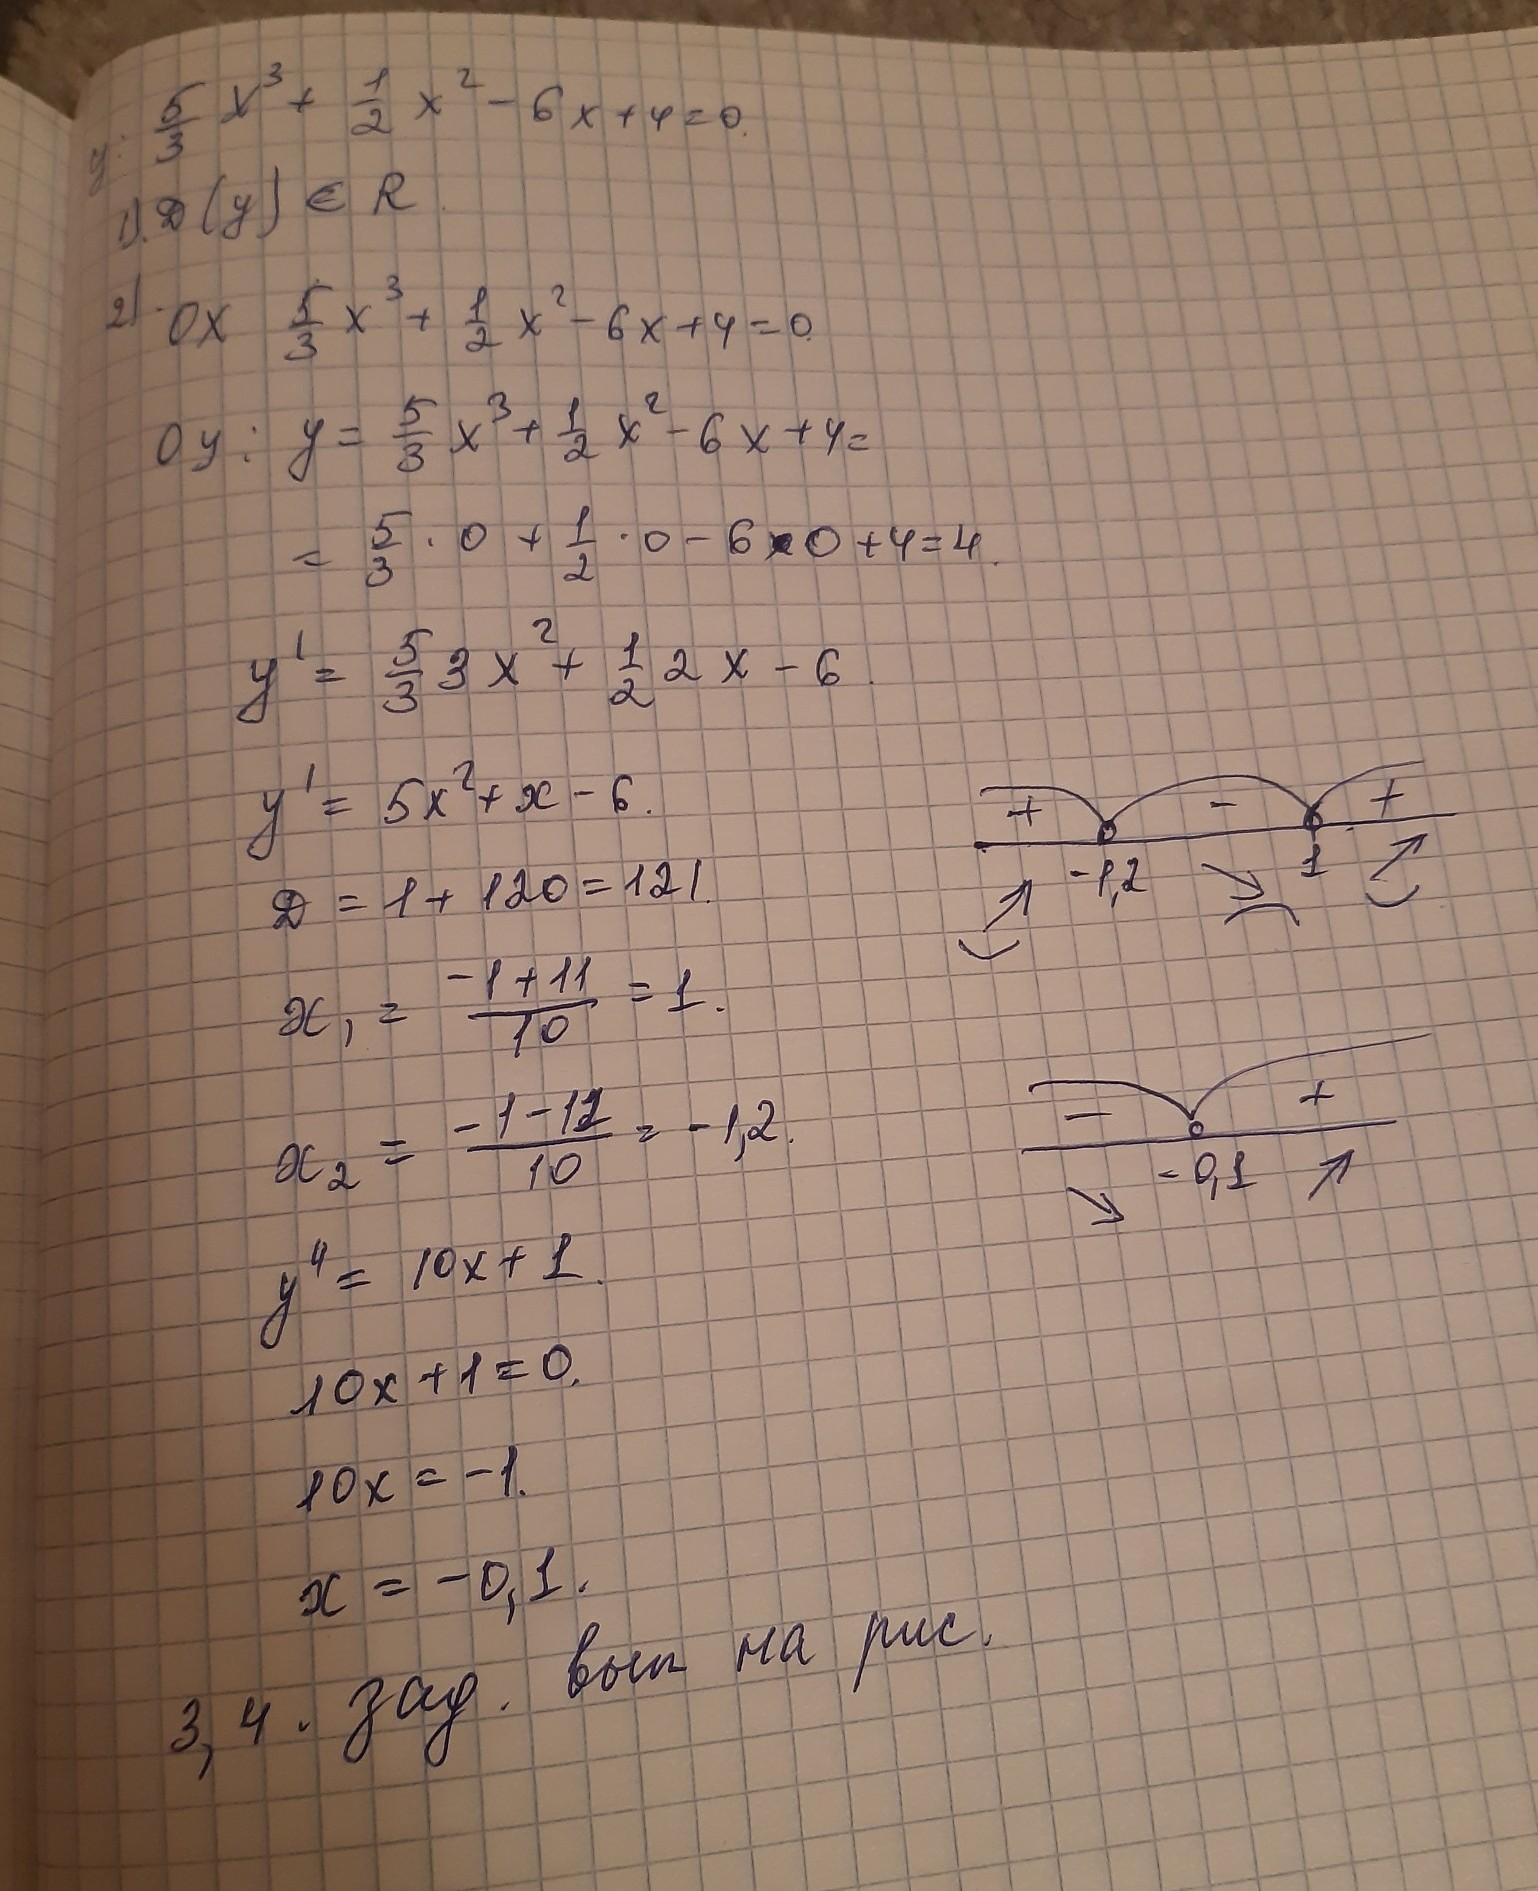 y: 5/3 x³ + 1/2 x² - 6x + 4 = 0.
1). D(y) ∈ R.
2) 0X 5/3 x³ + 1/2 x² - 6x + 4 = 0.
0y: y = 5/3 x³ + 1/2 x² - 6x + 4 =
= 5/3 · 0 + 1/2 · 0 - 6 · 0 + 4 = 4.
y' = 5/3 3x² + 1/2 2x - 6.
y' = 5x² + x - 6.
+ - +
-1,2 1
D = 1 + 120 = 121.
x₁ = (-1+11)/10 = 1.
- +
-0,1
x₂ = (-1-11)/10 = -1,2.
y'' = 10x + 1.
10x + 1 = 0.
10x = -1.
x = -0,1.
3, 4. зад. вып на рис.